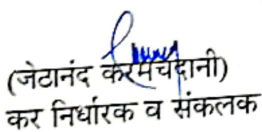 (जेठानंद करमचंदानी)
कर निर्धारक व संकलक